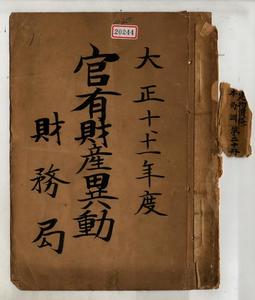 20244
大正十、十一年度
官有財産異動
財務局